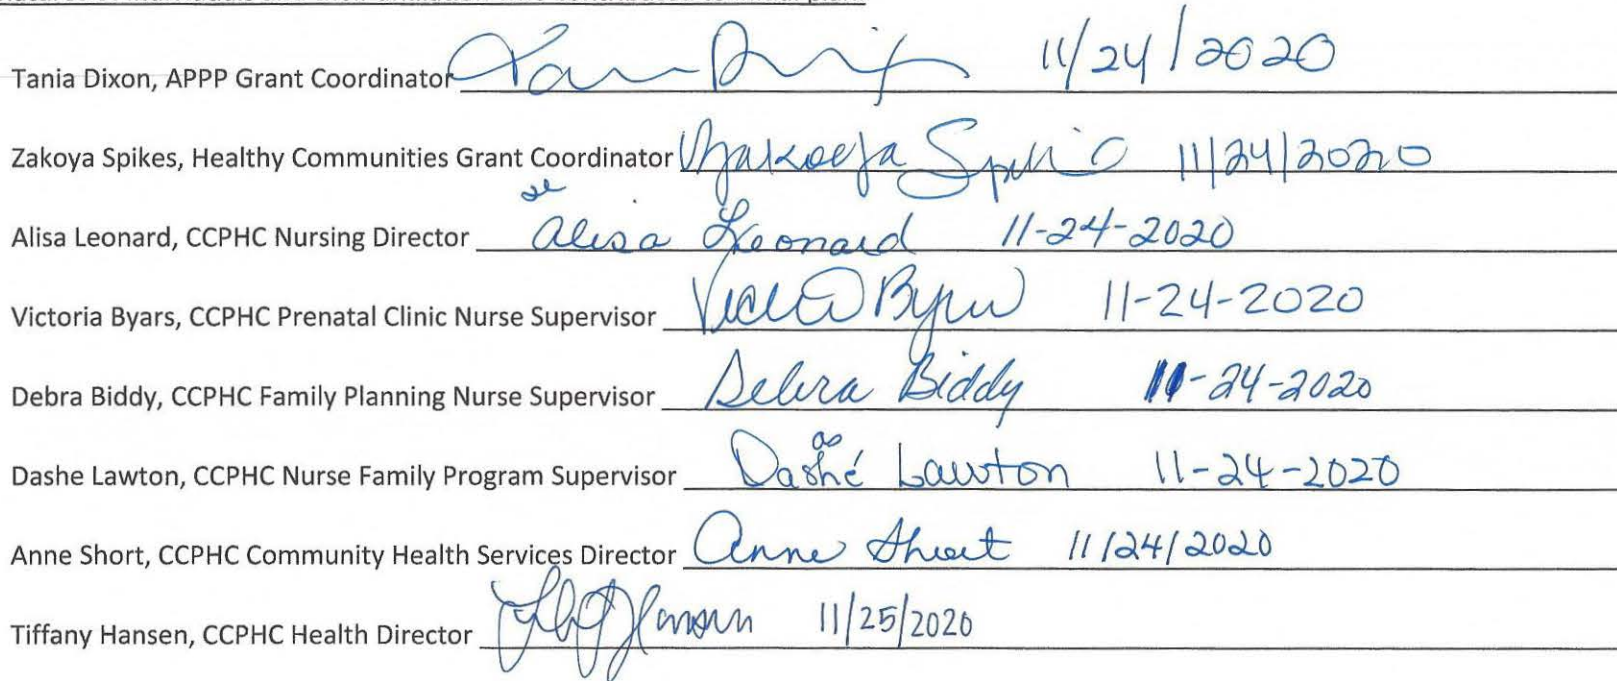 Tania Dixon, APPP Grant Coordinator 11/24/2020
Zakoya Spikes, Healthy Communities Grant Coordinator Zakoeya Spikes 11/24/2020
Alisa Leonard, CCPHC Nursing Director Alisa Leonard 11-24-2020
Victoria Byars, CCPHC Prenatal Clinic Nurse Supervisor 11-24-2020
Debra Biddy, CCPHC Family Planning Nurse Supervisor Debra Biddy 11-24-2020
Dashe Lawton, CCPHC Nurse Family Program Supervisor Dashé Lawton 11-24-2020
Anne Short, CCPHC Community Health Services Director Anne Short 11/24/2020
Tiffany Hansen, CCPHC Health Director 11/25/2020